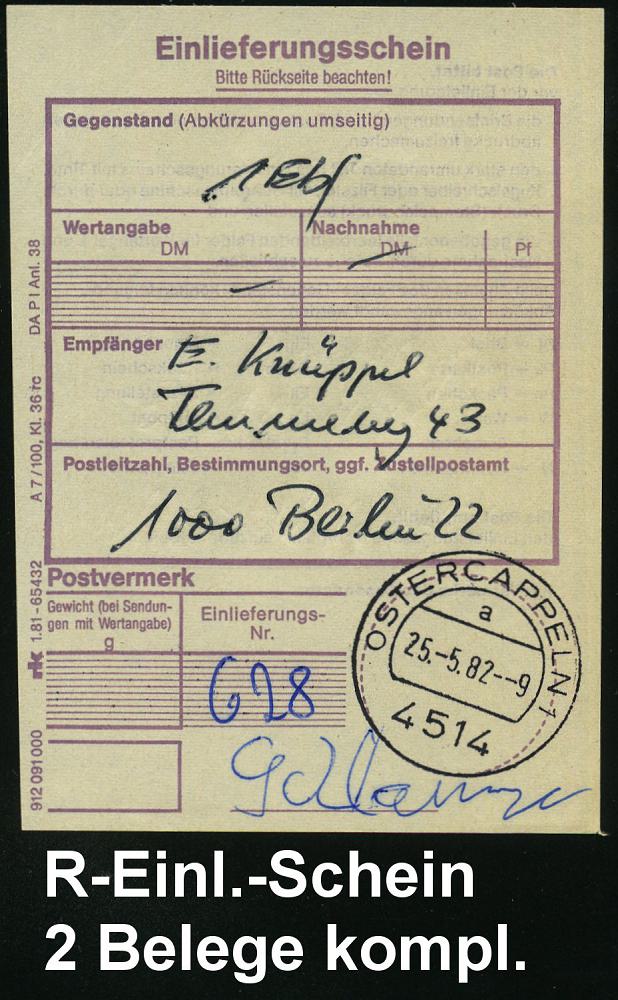 Einlieferungsschein
Bitte Rückseite beachten!
Gegenstand (Abkürzungen umseitig)
1 Ebf
Wertangabe
DM
Nachnahme
DM
Pf
—
Empfänger E. Knüppel
43
Postleitzahl, Bestimmungsort, ggf. Zustellpostamt
1000 Berlin 22
Postvermerk
Gewicht (bei Sendun-
gen mit Wertangabe)
g
Einlieferungs-
Nr.
628
OSTERCAPPELN 1
a
25.-5.82--9
4514
DA P I Anl. 38
A 7/100, Kl. 36 tc
rk 1.81-65432
912 091 000
R-Einl.-Schein
2 Belege kompl.